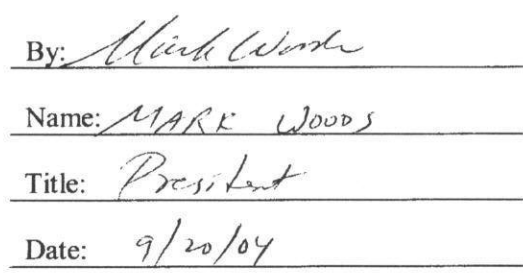 By: Mark Woods
Name: MARK WOODS
Title: President
Date: 9/20/04